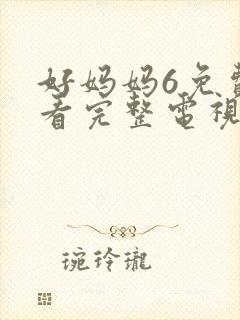 好妈妈6免費
看完整電視
琬玲瓏